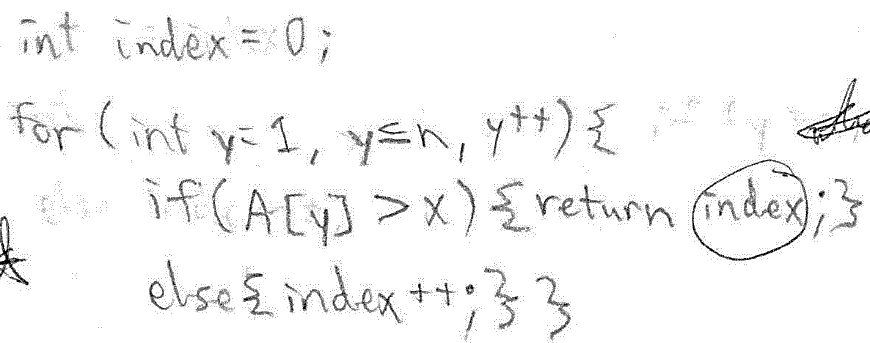 int index = 0;
for (int y=1, y≤n, y++) {
if (A[y] > x) { return index; }
else { index ++; } }